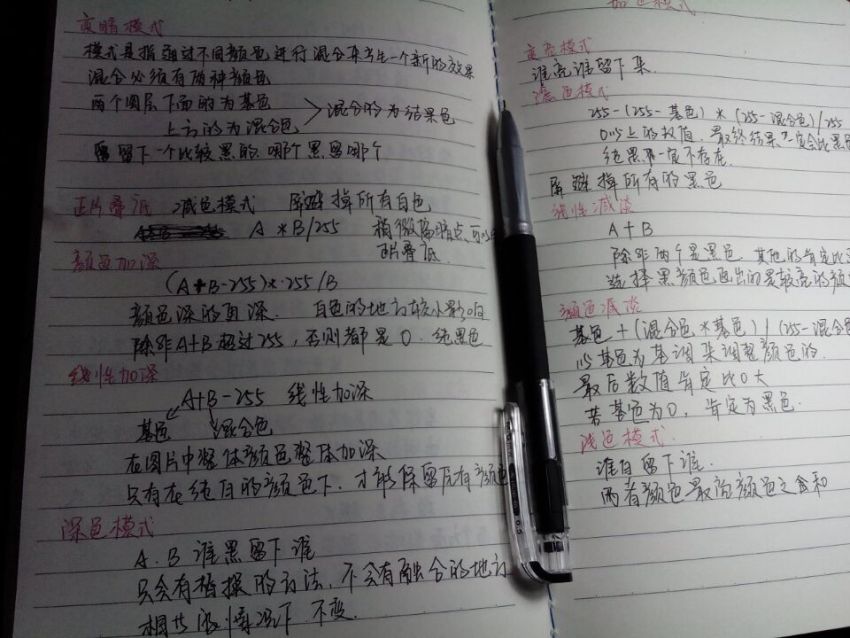 变暗模式
模式是指通过不同颜色进行混合来产生一个新的效果
混合必须有两种颜色
两个图层下面的为基色
上方的为混合色 > 混合的为结果色
留下一个比较黑的 哪个黑留哪个
正片叠底 减色模式 屏蔽掉所有白色
A * B/255 稍微偏暗点
正片叠底
颜色加深
(A+B-255)*255/B
颜色深的更深. 白色的地方较小影响
除非A+B超过255, 否则都是0. 纯黑色
线性加深
A+B-255 线性加深
基色 混合色
在图片中整体颜色整体加深
只有在纯白的颜色下, 才能保留原有颜色
深色模式
A. B 谁黑留下谁
只会有替换的方法, 不会有融合的地方
相比的情况下 不变.
加色模式
变亮模式
谁亮谁留下来.
滤色模式
255-(255-基色)*(255-混合色)/255
0以上的数值 最终结果一定会比黑
纯黑不一定不存在.
屏蔽掉所有的黑色
线性减淡
A+B
除非两个是黑色 其他的肯定比
选择黑颜色画出的是较亮的颜
颜色减淡
基色+(混合色*基色)/(255-混合色
以基色为基调来调整颜色的.
最后数值肯定比0大
若基色为0, 肯定为黑色.
浅色模式
谁白留下谁.
两者颜色最高颜色之和